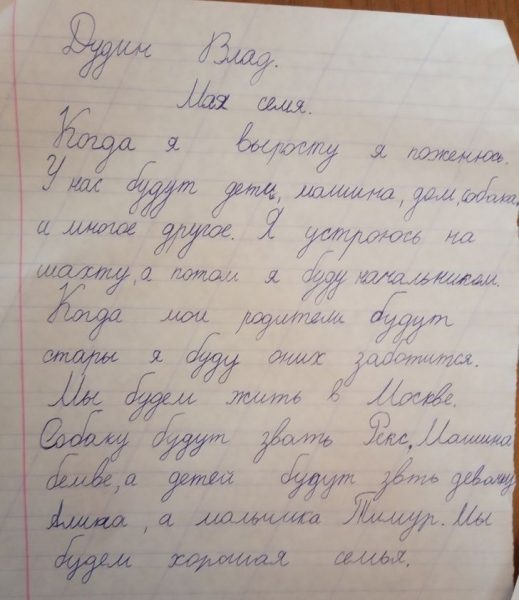 Дудин Влад.
Моя семя.
Когда я выросту я поженюсь.
У нас будут дети, машина, дом, собака,
и многое другое. Я устроюсь на
шахту, а потом я буду начальником.
Когда мои родители будут
стары я буду оних заботится.
Мы будем жить в Москве.
Собаку будут звать Рекс, Машина
бемве, а детей будут звть девочку
Алина, а мальчика Тимур. Мы
будем хорошая семья.